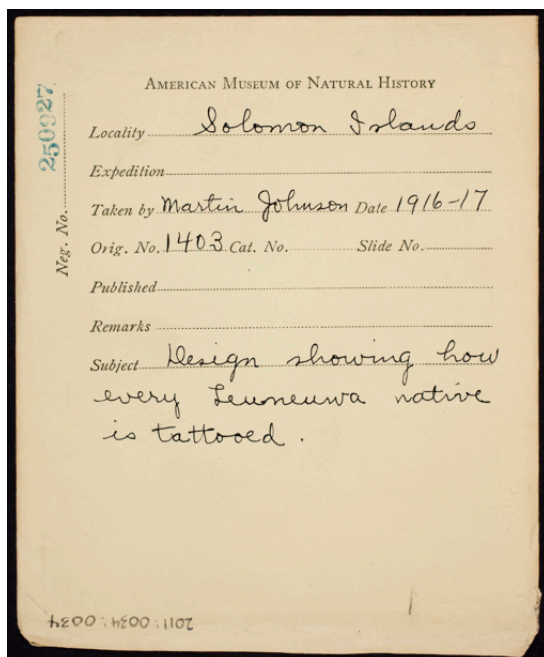 AMERICAN MUSEUM OF NATURAL HISTORY
Neg. No. 250927
Locality Solomon Islands
Expedition
Taken by Martin Johnson Date 1916-17
Orig. No. 1403 Cat. No. Slide No.
Published
Remarks
Subject Design showing how
every Leuneuwa native
is tattooed.
2011:0034:0034